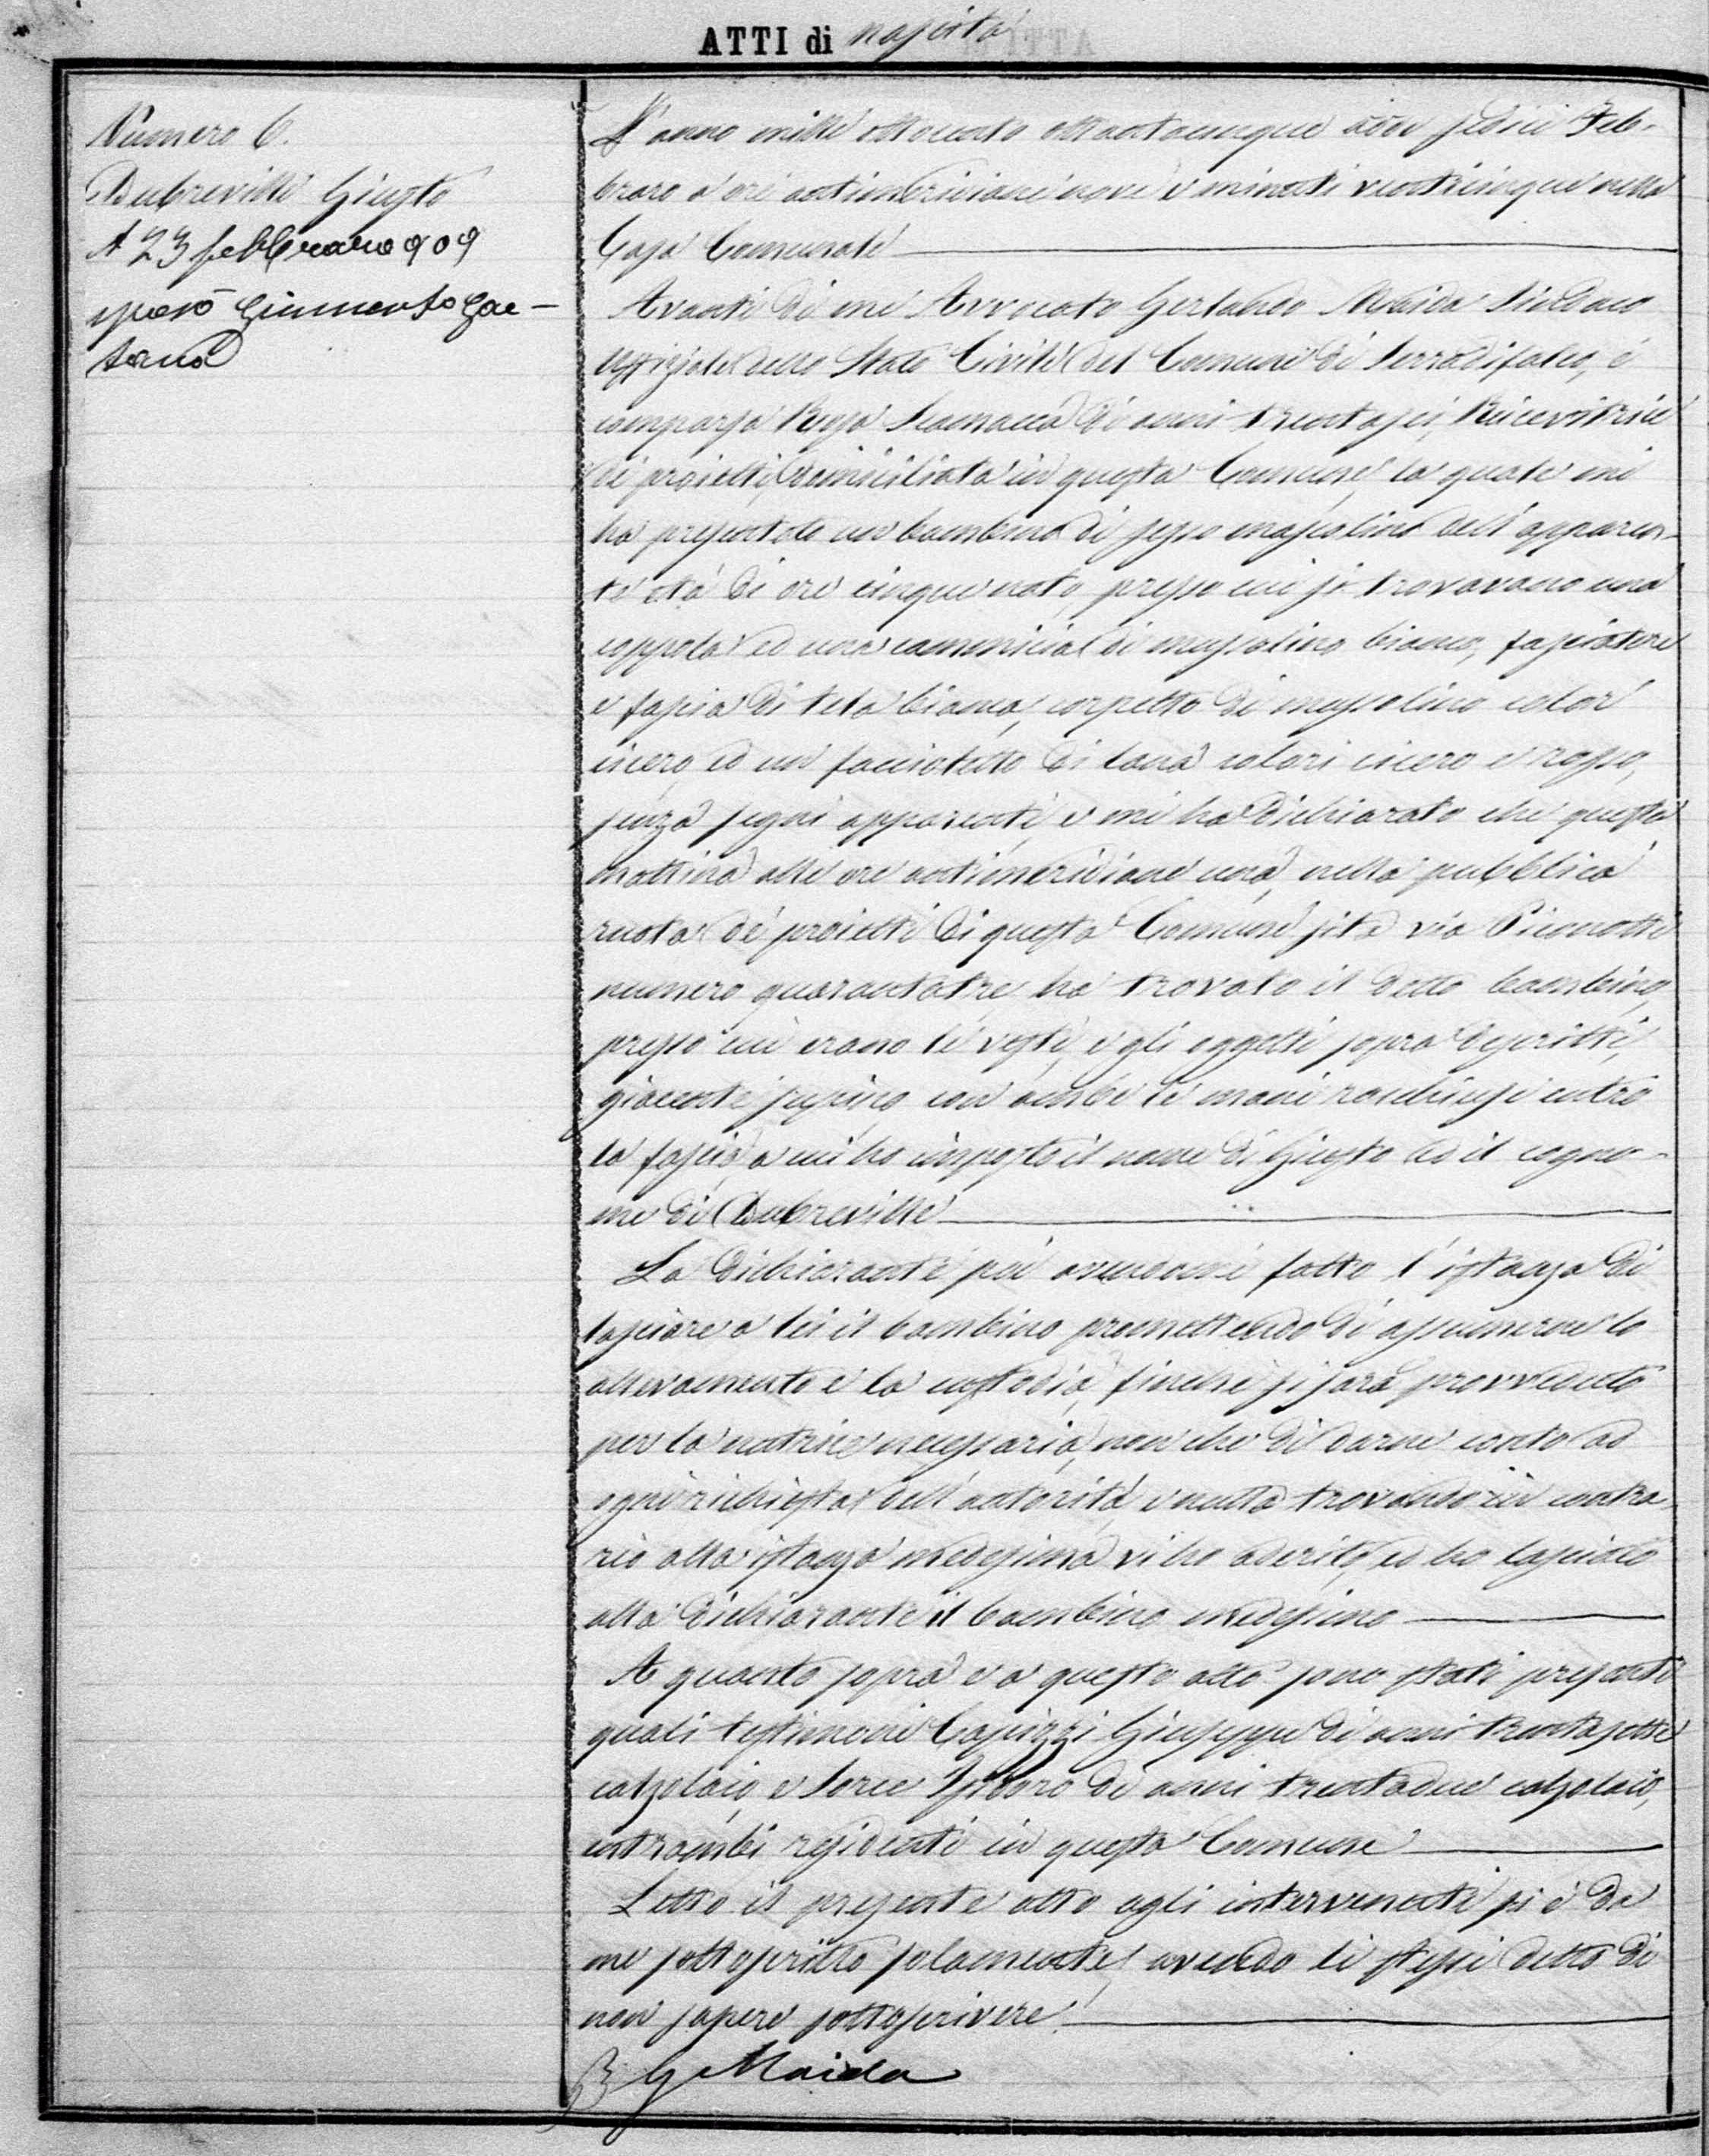 ATTI di nascita
Numero 6.
Dubreville Giusto
A 23 febbraio 909
sposò Giummento Gae-
tana
L'anno mille ottocento ottantacinque addì sedici Feb-
braro a ore antimeridiane nove e minuti venticinque nella
Casa Comunale
Avanti di me Avvocato Gerlando Maida Sindaco
Uffiziale dello Stato Civile del Comune di Serradifalco, è
comparsa Rosa Scannacca di anni trentasei, Ricevitrice
di proietti, domiciliata in questa Comune, la quale mi
ha presentato un bambino di sesso mascolino dell'apparen-
te età di ore cinque nato, presso cui si trovavano una
coppola ed una cammicia di mussolino bianco, fasciatore
e fascia di tela bianca, corpetto di mussolino color
incero, ed un faccioletto di lana colori incero e rosso,
senza segni apparenti, e mi ha dichiarato che questa
mattina alle ore antimeridiane una, nella pubblica
ruota de' proietti di questa Comune sita via
numero quarantatre, ha trovato il detto bambino,
presso cui erano le vesti, e gli oggetti sopra descritti,
giacente supino con ambe le mani rachiuse entro
la fascia, a cui ho imposto il nome di Giusto ed il cogno-
me di Dubreville
La dichiarante poi avendomi fatto l'istanza di
lasciare a lei il bambino promettendo di assumerne lo
allevamento e la custodia, finchè si sarà provveduto
per la nutrice necessaria, non che di darne conto ad
ogni richiesta dell'autorità, e nulla trovando in contra-
rio alla istanza medesima vi ho aderito, ed ho lasciato
alla dichiarante il bambino medesimo
A quanto sopra e a questo atto sono stati presenti
quali testimoni Capizzi Giuseppe di anni trentasette
calzolaio, e Sorce Isidoro di anni trentadue calzolaio,
entrambi residenti in questa Comune
Letto il presente atto agli intervenuti si è da
me sottoscritto solamente, avendo li stessi detto di
non sapere sottoscrivere.
G Maida